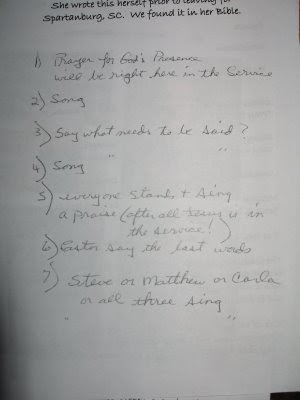 She wrote this herself prior to leaving for
Spartanburg, SC. We found it in her Bible.
1) Prayer for God's Presence
will be right here in the Service
2) Song
3) Say what needs to be said?
" "
4) Song
5) everyone Stands + Sing
a praise (after all Jesus is in
the service!)
6) Pastor say the last words
7) Steve or Matthew or Carla
or all three sing
" "